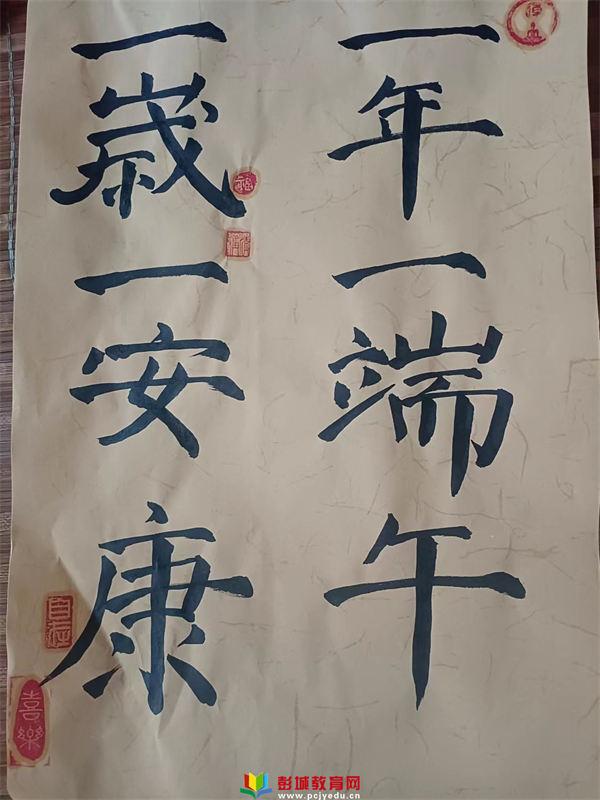 一年一端午
一歲一安康
喜樂
彭城教育网
www.pcjyedu.cn